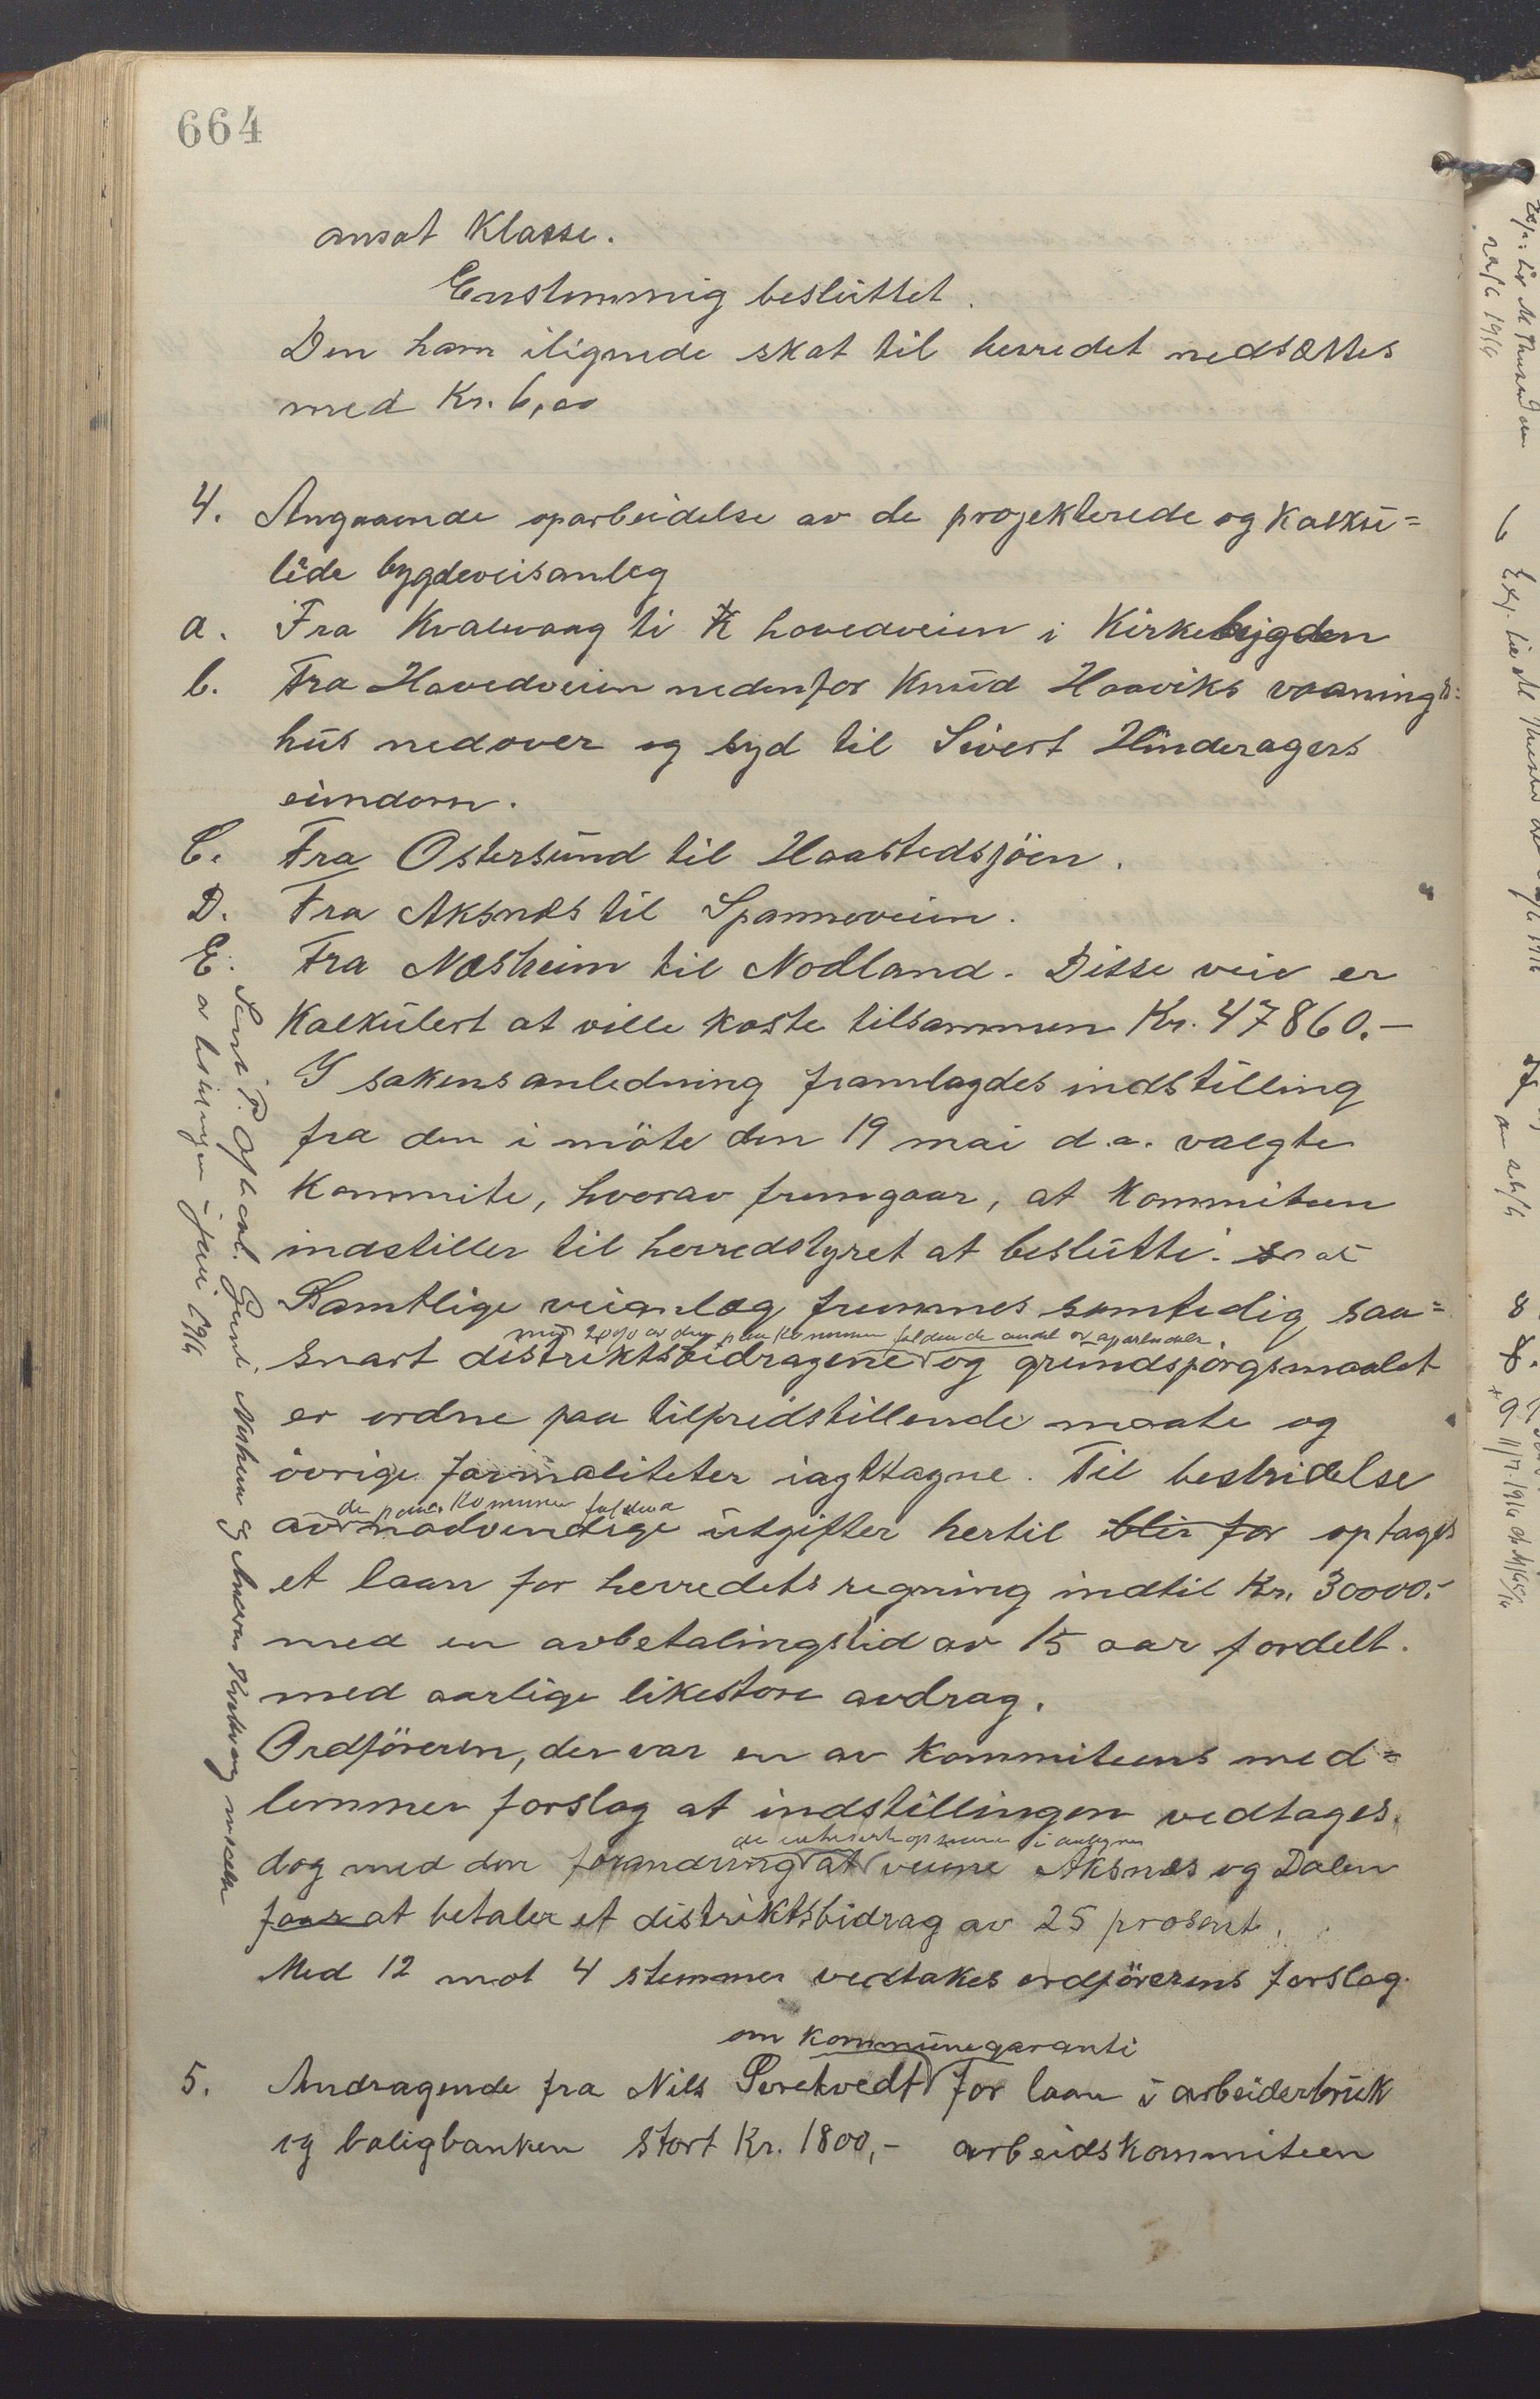 664
ansat Klasse.
Enstemmig besluttet.
Den ham ilignede skat til herredet nedsættes
med Kr. 6,00
4. Angaaende oparbeidelse av de projekterede og Kalku=
lede bygdeveisanlæg
a. Fra Kvalevaag ti hovedveien i Kirkebygden
b. Fra Hovedveien nedenfor Knud Haaviks vaanings=
hus nedover og syd til Sivert Hinderagers
eiendom.
C. Fra Ostersund til Haastedsjöen.
D. Fra Aksnæs til Spanneveien.
E. Fra Næsheim til Nodland. Disse veie er
Kalkulert at ville koste tilsammen Kr. 47860.–
I sakens anledning framlagdes indstilling
fra den i möte den 19 mai d.a. valgte
Kommite, hvorav fremgaar, at Kommiteen
indstiller til herredstyret at beslutte: at
Samtlige veianlæg fremmes samtidig saa=
med 20% av den paa Kommunen faldende andel av oparbeidelse.
snart distriktsbidragene og grundspörgsmaalet
er ordne paa tilfredstillende maate og
övrige formaliteter iagttagne. Til bestridelse
de paa Kommunen faldene
av nodvendige utgifter hertil blir for optages
et laan for herredets regning indtil Kr. 30000.–
med en avbetalingstid av 15 aar fordelt.
med aarlige likestore avdrag.
Ordföreren, der var en av Kommiteens med=
lemmer forslog at indstillingen vedtages.
dog med den forandring at veiene Aksnæs og Dalen
faar at betaler et distriktsbidrag av 25 prosent.
Med 12 mot 4 stemmer vedtakes ordförerens forslag.
om kommunegaranti
5. Andragende fra Nils Seretvedt for laan i arbeiderbruk
og boligbanken stort Kr. 1800,– arbeidskommiteen